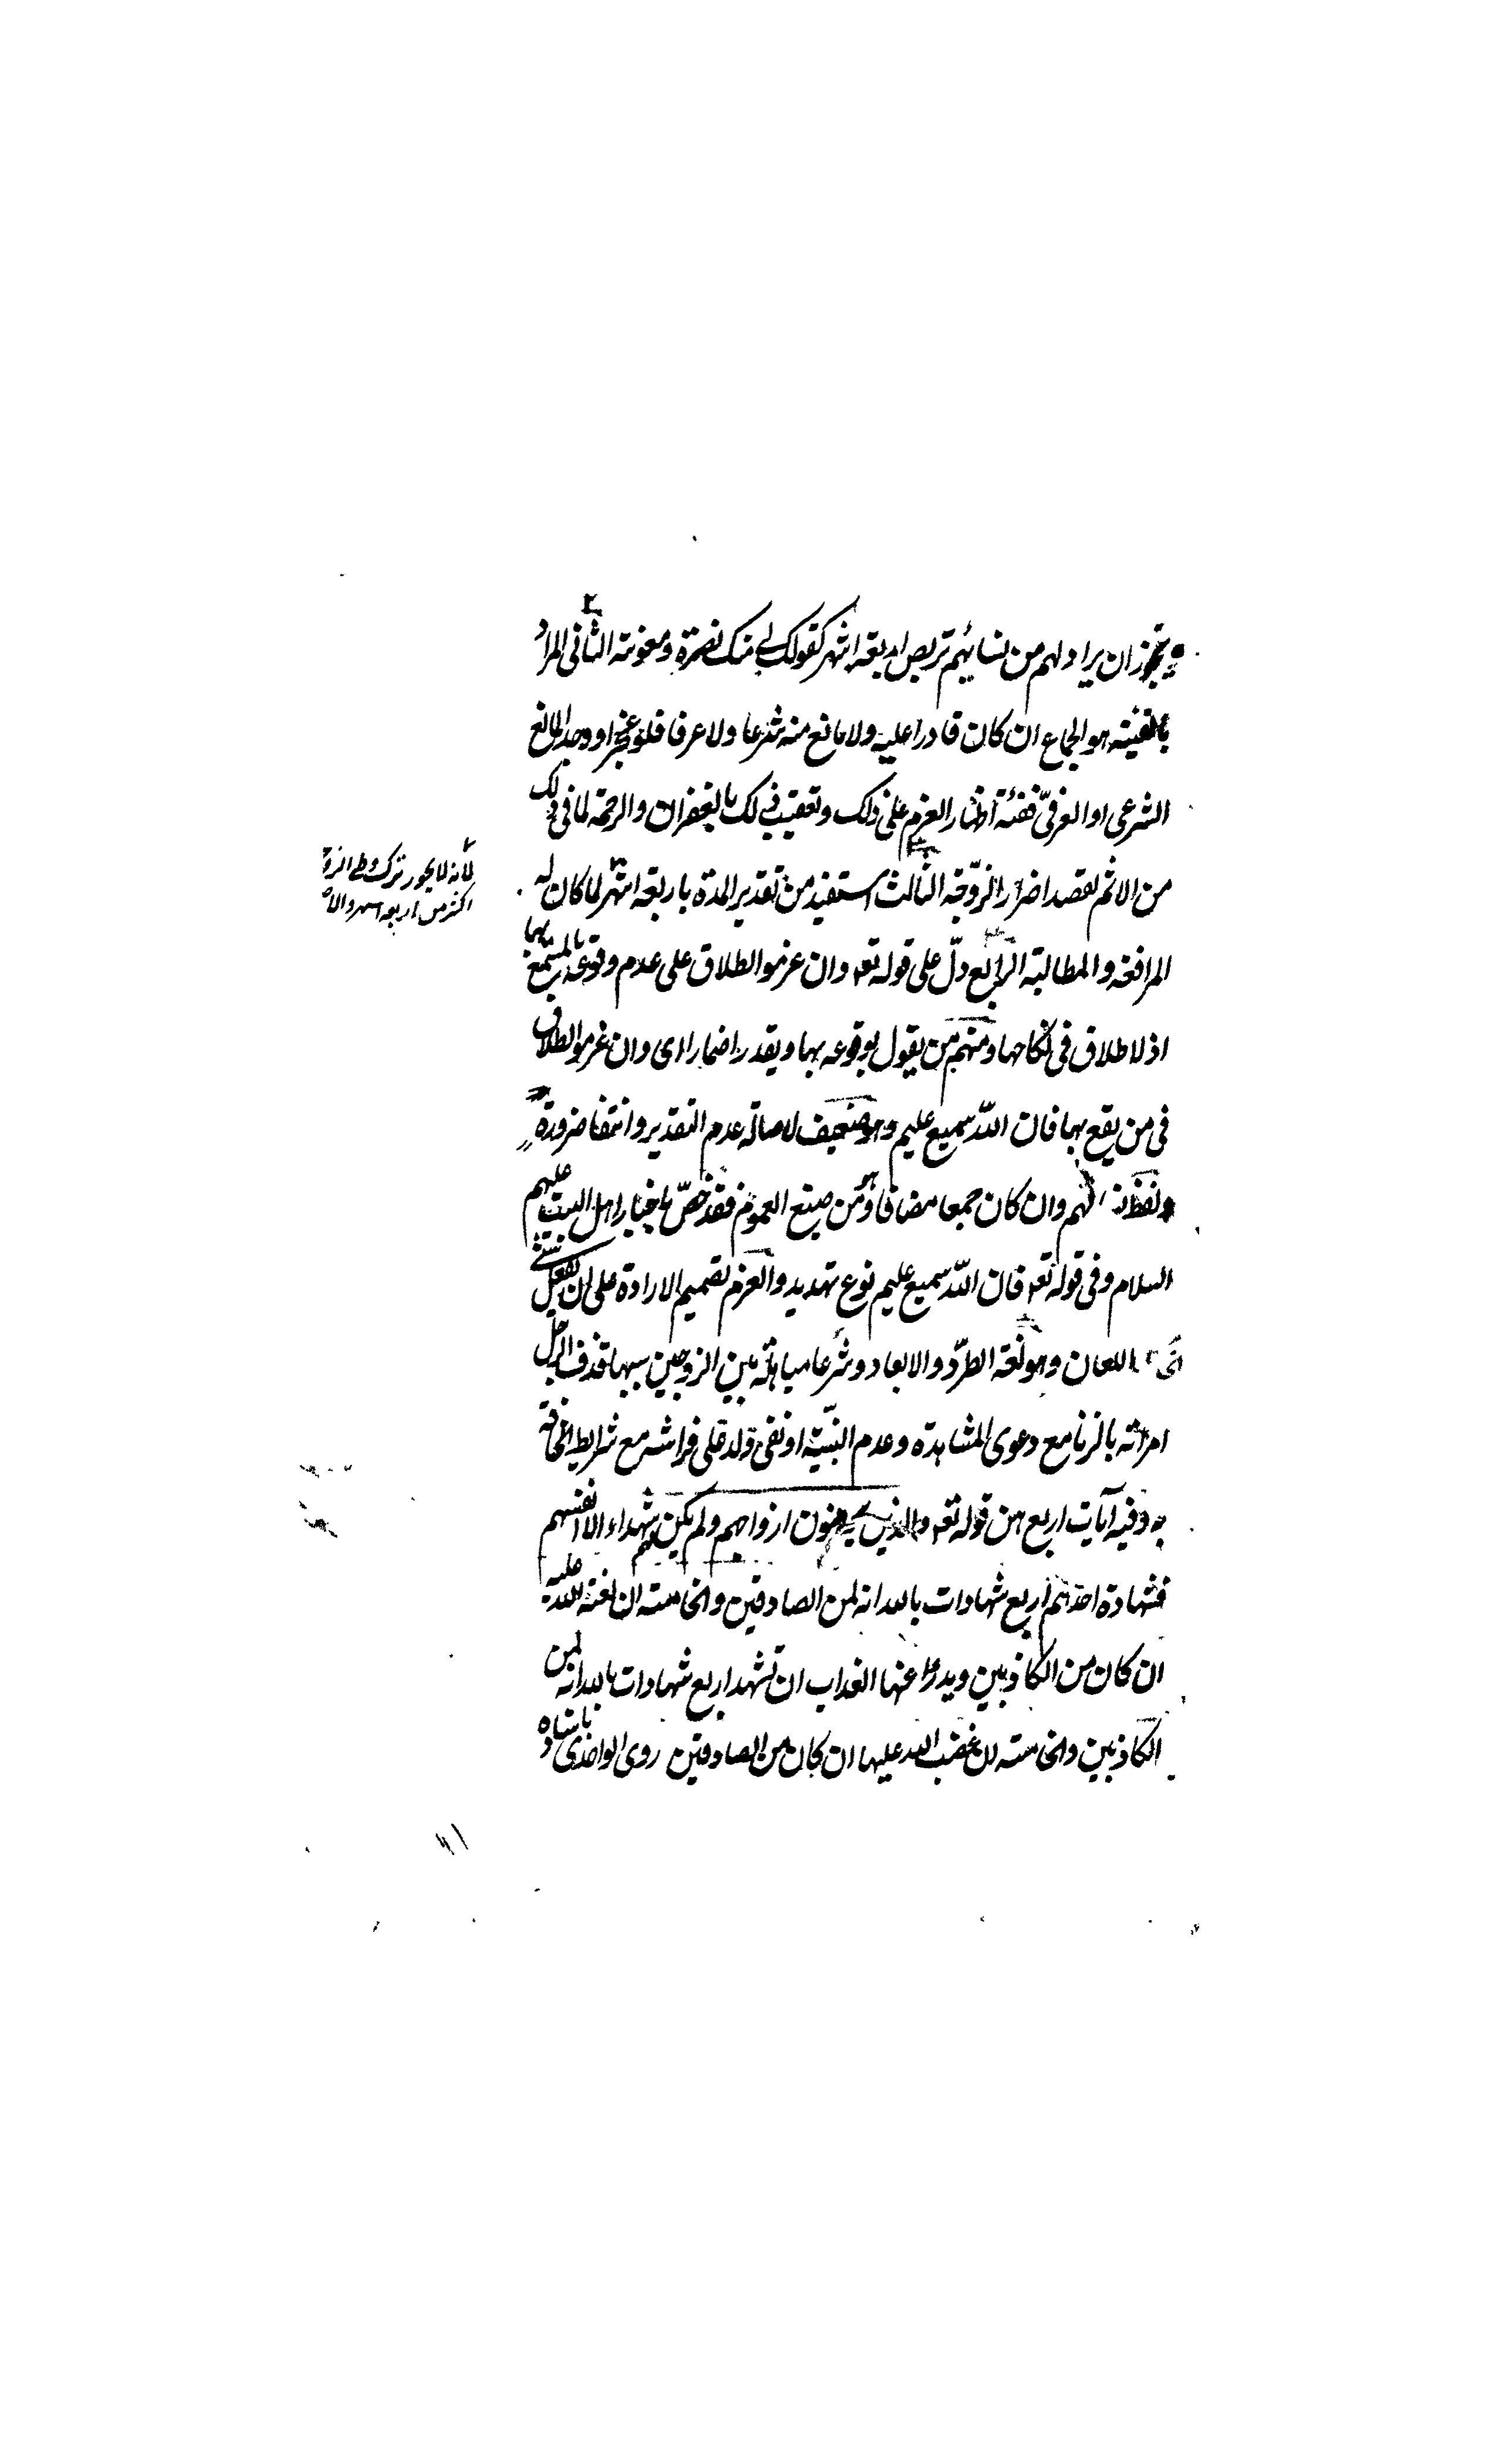 ويجوز ان يراد لهم من نسائهم تربص اربعة اشهر كقولك لي منك نصرة ومعونة الثاني المراد
بالفيئة هو الجماع ان كان قادرا عليه ولا مانع منه شرعا ولا عرفا فلو عجز او وجد المانع
الشرعي او العرفيّ ففئته اظهار العزم على ذلك وتعقيب ذلك بالغفران والرحمة لما في ذلك
من الاثم لقصد اضرار الزوّجة الثالث استفيد من تقدير المدة باربعة اشهر لما كان له
المرافعة والمطالبة الرابع دلّ على قوله تعه وان عزموا الطلاق على عدم وقوعه بالمتمتع بها
اذ لا طلاق في نكاحها ومنهم من يقول بوقوعه بها ويقدر اضمارا اى وان عزموا الطلاق
في من يقع بها فان اللّه سميع عليم وهو ضعيف لاصالة عدم التقدير وانتفا ضرورة
ولفظ نسائهم وان كان جمعا مضافا وهو من صيغ العموم فقد خصّ باخبار اهل البيت عليهم
السلام وفي قوله تعه فان اللّه سميع عليم نوع تهديد والعزم تصميم الارادة على ان يفعل شئ
اللعان وهو لغة الطرّد والابعاد وشرعا مباهلة بين الزوجين سببها قذف الرجل
امراته بالزنا مع دعوى المشاهدة وعدم البنيّة او نفى ولد على فراشه مع شرايط الحاقه
به وفيه آيات اربع من قوله تعه والذين يرمون ازواجهم ولم يكن لهم شهداء الا انفسهم
فشهادة احدهم اربع شهادات بالله انه لمن الصادقين والخامسة ان لعنة الله عليه
ان كان من الكاذبين ويدرؤا عنها العذاب ان تشهد اربع شهادات بالله انه لمن
الكاذبين والخامسة ان غضب الله عليها ان كان من الصادقين روى الواحدى باسناده
لأنه لا يجوز ترك وطى الزوجة
اكثر من اربعة اشهر والا